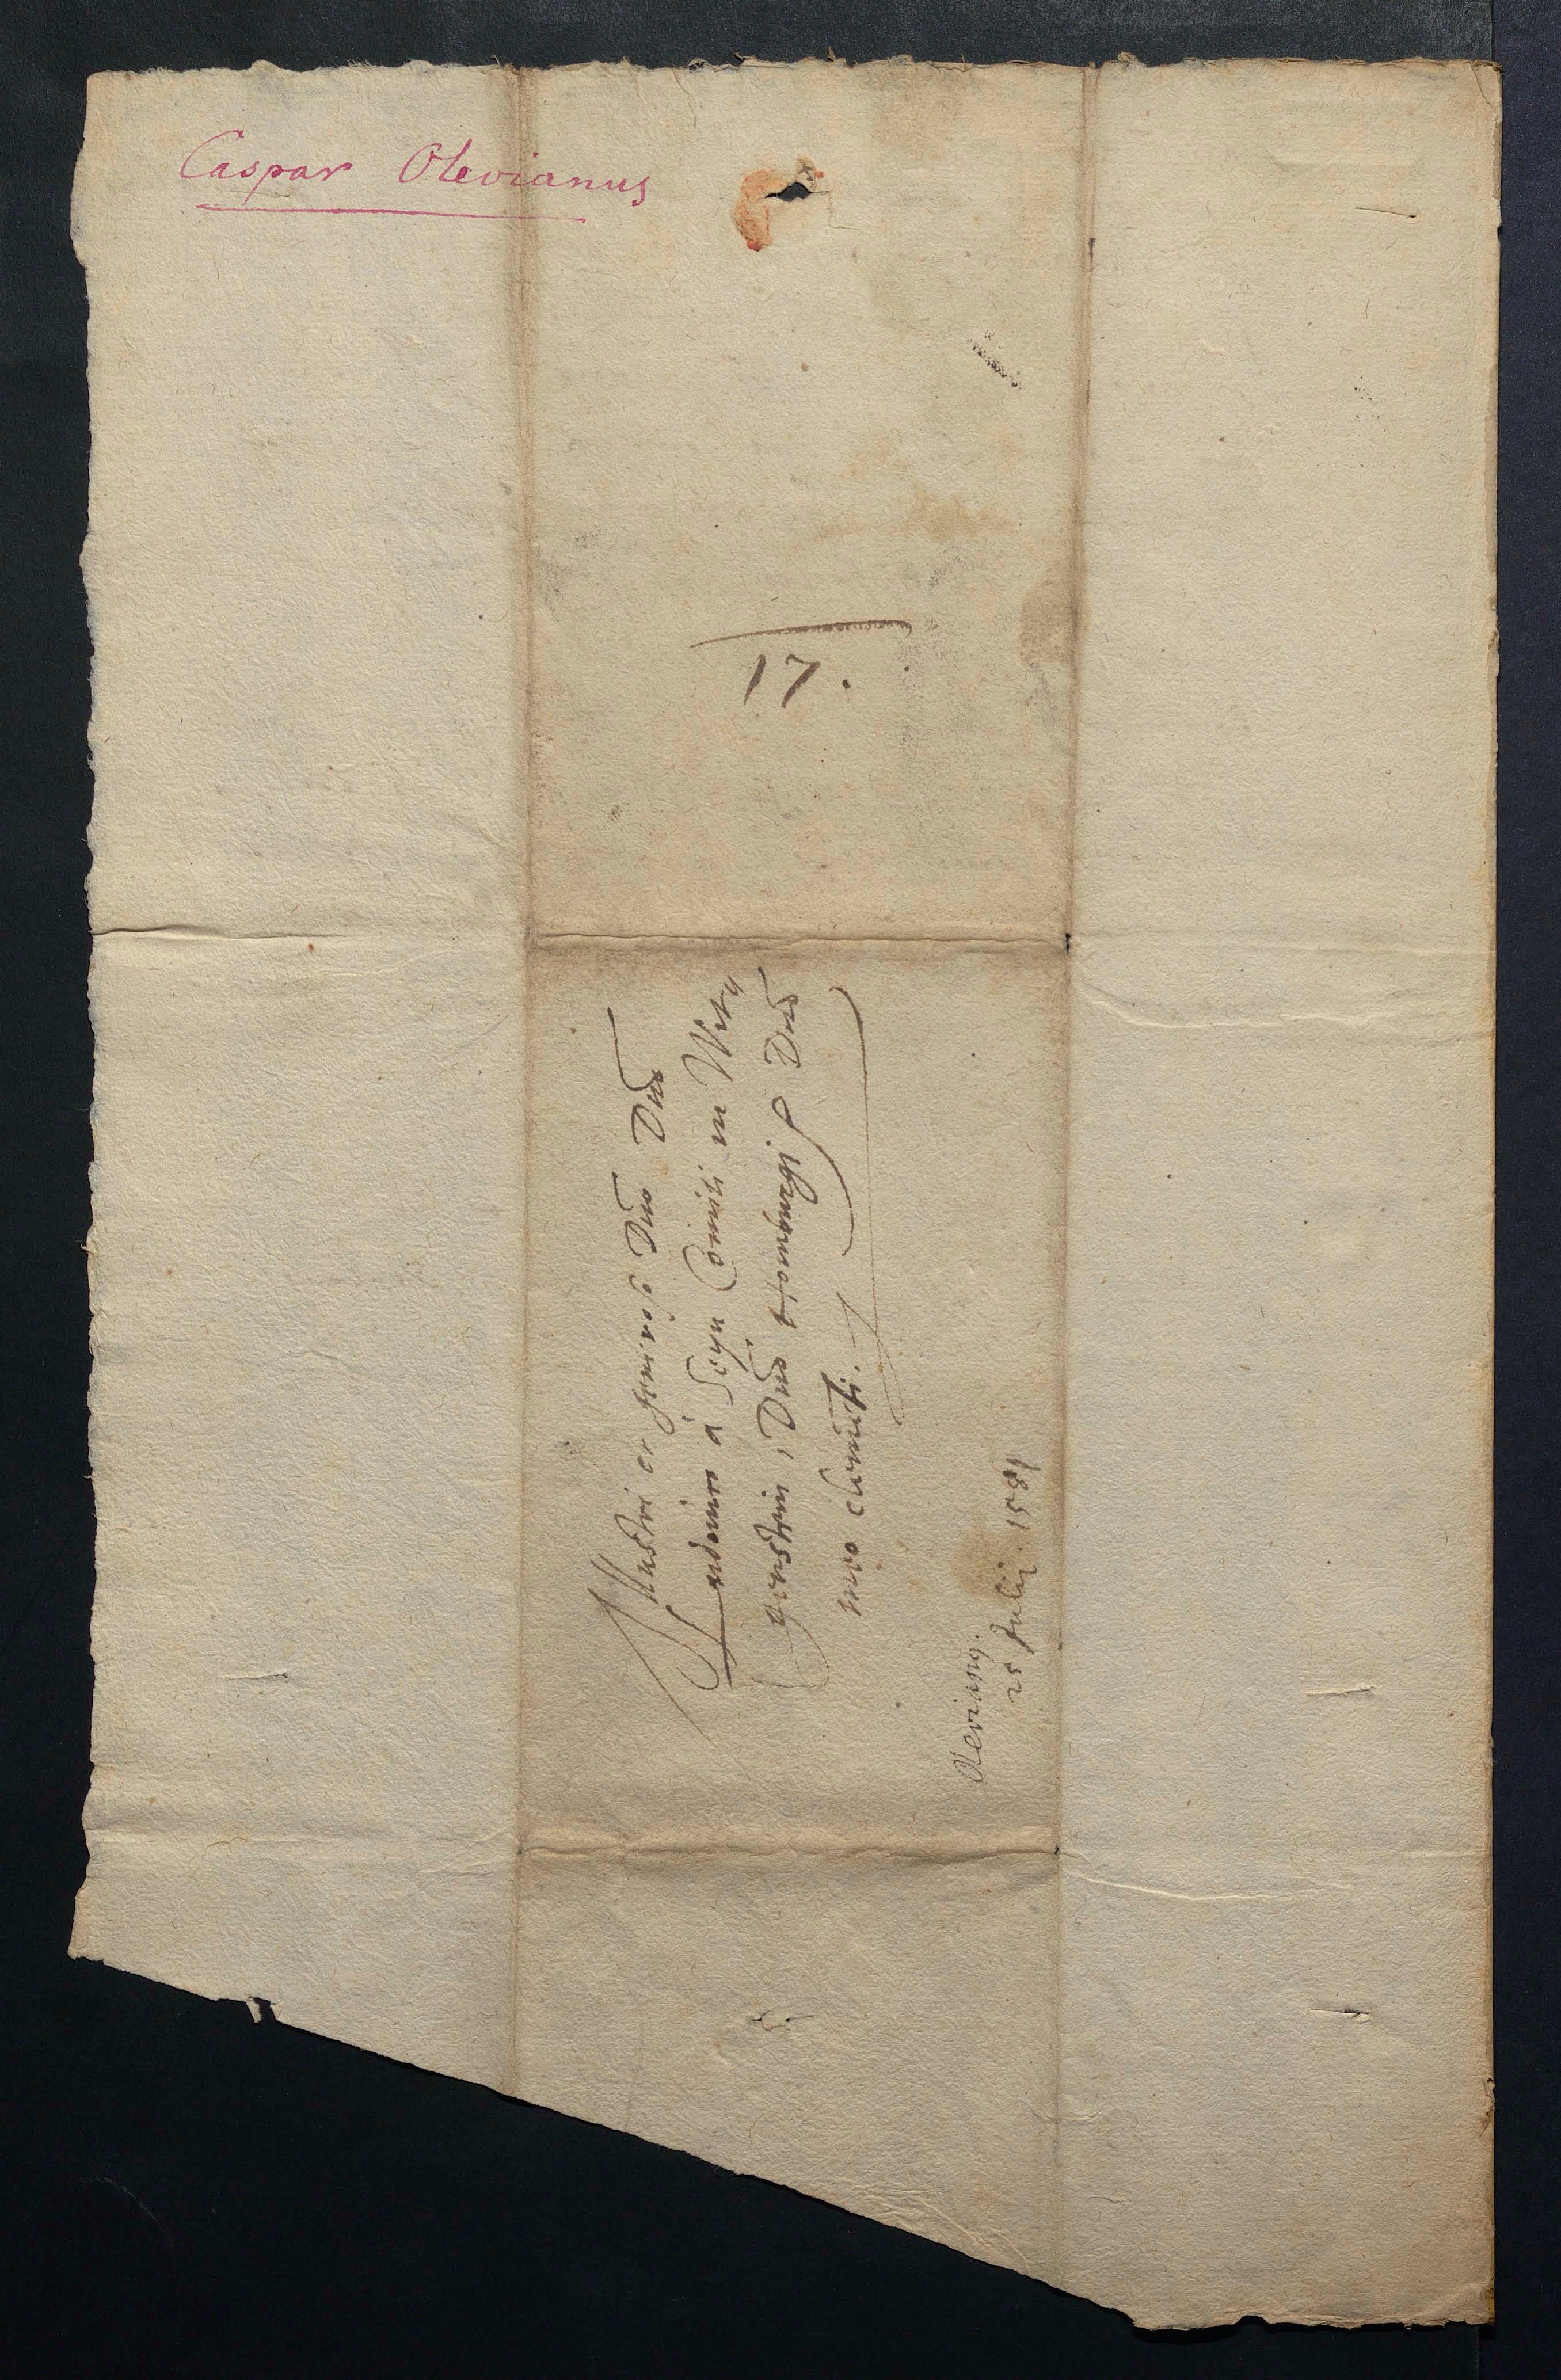 Caspar Olevianus
17.
Illustri et generoso Dno Dno
Ludovico à Seyn Comiti in Witg
genstein, Dno Homburgi Dno
meo clementi.
Olevianus.
25 Julii. 1581